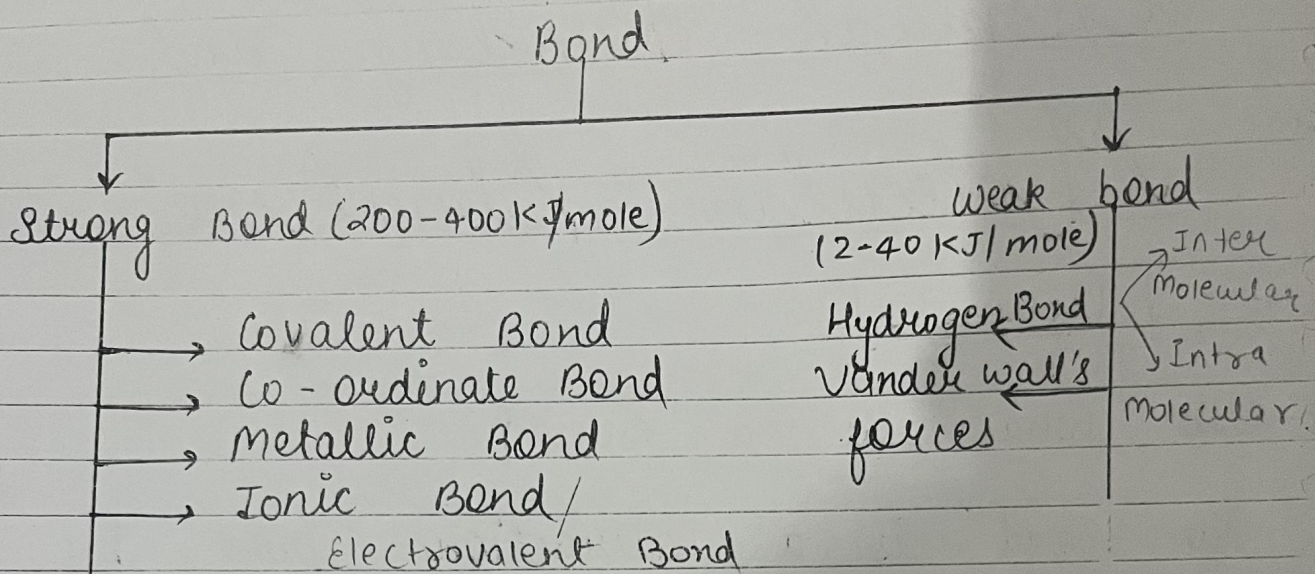 Bond
Strong Bond (200-400KJ/mole)
Covalent Bond
Co-ordinate Bond
Metallic Bond
Ionic Bond/
Electrovalent Bond
weak bond
(2-40 KJ/mole)
Hydrogen Bond
Inter
Molecular
Intra
Molecular
Vander wall's
forces